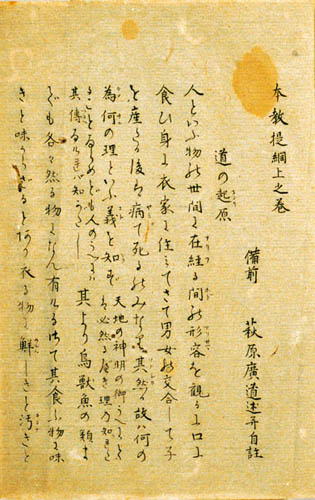 本教提綱上之巻
備前 萩原廣道述并自註
道の起原
人といふ物の世間に在経る間の形容を観るに口に
食ひ身に衣家に住てさて男女の交合して子
を産さる後に病て死るのみなるを其然る故は何の
為何の理といふ義を知ず 天地の神明の御うへ
必然るべき理の知
きことなるめども人のうへ
其傳 知 其より鳥獣魚の類ま
でも各々然る物になん有けるさて其食ふ物に味
きと味からざると有り衣る物に鮮しきと汚きと